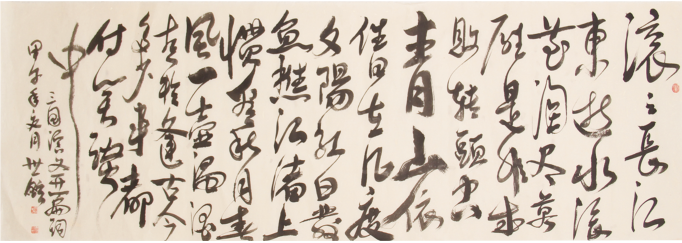 滚々長江
東逝水浪
花淘尽英
雄是非成
敗转頭空
青山依
旧在几度
夕陽红白發
渔樵江渚上
慣看秋月春
風一壶濁酒
喜相逢古今
多少事都
付笑谈
中
三国演义开篇词
甲午年 月